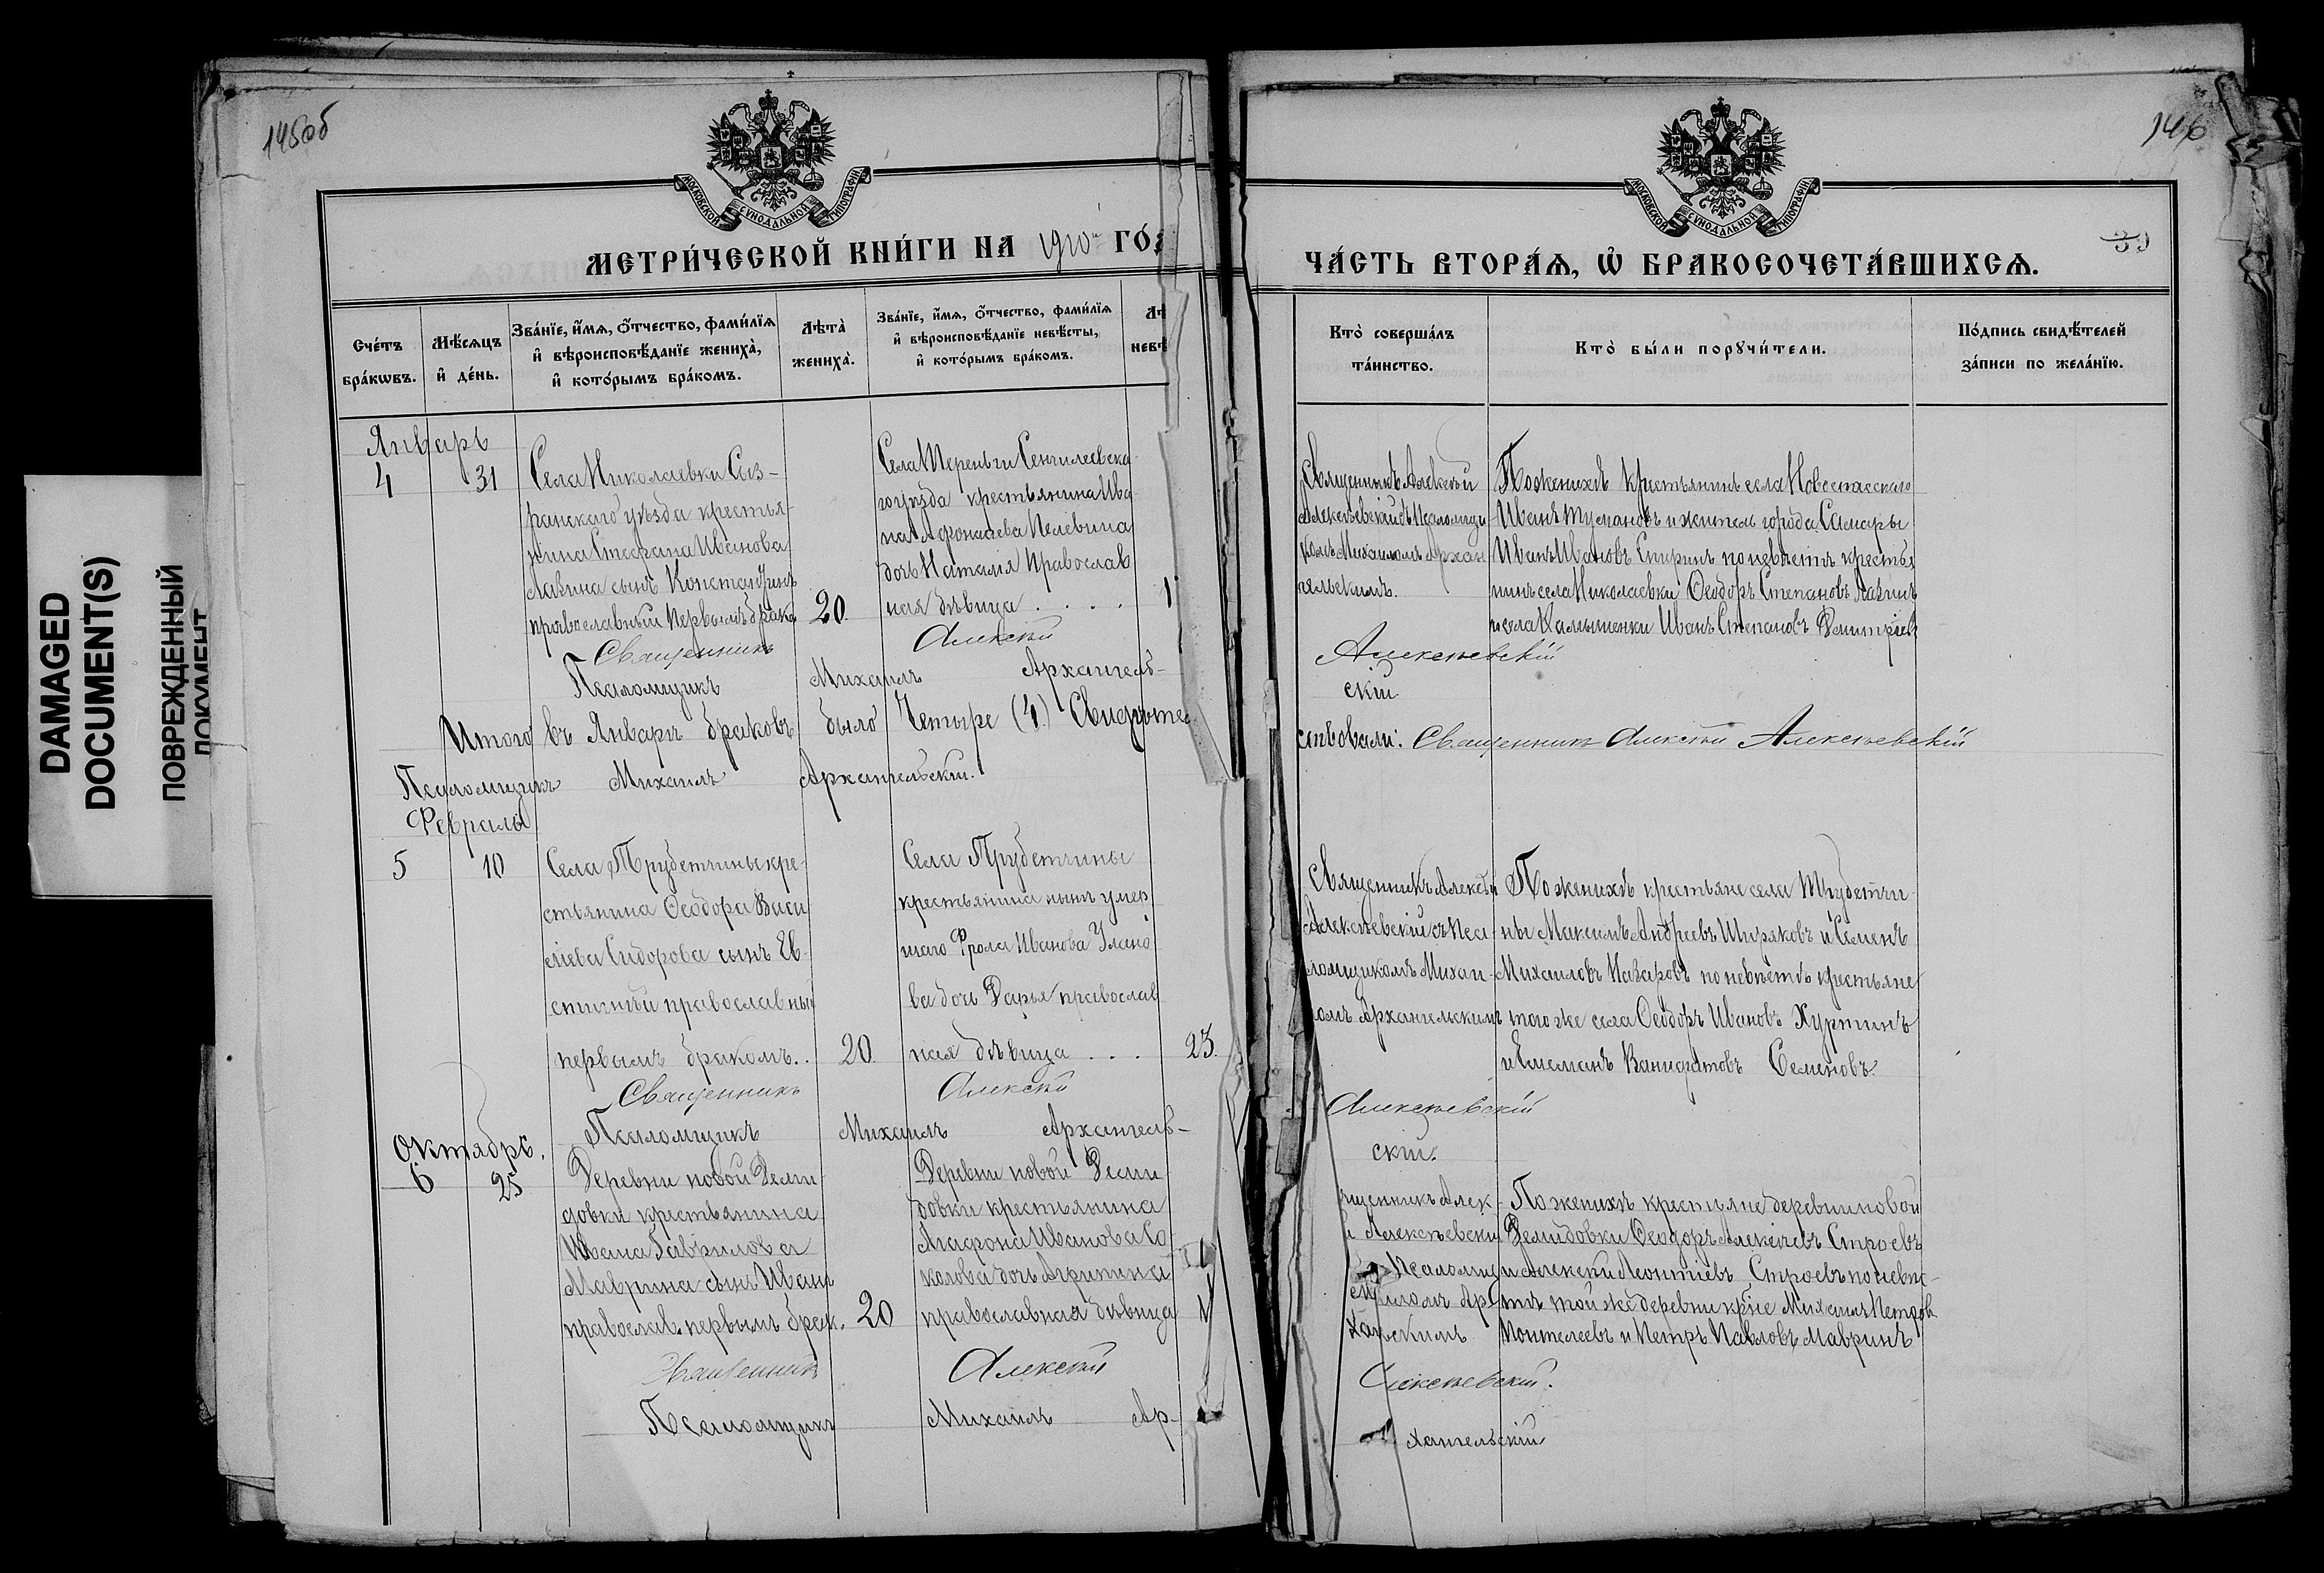 145об
МОСКОВСКОЙ СѴНОДАЛЬНОЙ ТИПОГРАФІИ
МЕТРИ́ЧЕСКОЙ КНИ́ГИ НА 1910й ГО́
Сче́тъ бра́кѡвъ.
Мѣ́сяцъ и҆ де́нь.
Зва́нїе, и҆́мѧ, ѻ҆́тчество, фами́лїѧ и҆ вѣроисповѣ́данїе жениха̀, и҆ кото́рымъ бра́комъ.
Лѣта̀ жениха̀.
Зва́нїе, и҆́мѧ, ѻ҆́тчество, фами́лїѧ и҆ вѣроисповѣ́данїе невѣ́сты, и҆ кото́рымъ бра́комъ.
Январь
4
31
Села Николаевки Сыз-
ранскаго уѣзда крестья-
нина Стефана Иванова
Лазина сынъ Константинъ
православный первымъ брако
20.
Села Тереньги Сенгилеевска-
го уѣзда крестьянина Ива
на Афонасьева Пелевина
дочь Наталія Православ
ная дѣвица . . . .
Священникъ Алексѣй
Псаломщикъ Михаилъ Архангель-
Итого въ Январѣ браковъ было Четыре (4.) Свидѣте
Псаломщикъ Михаилъ Архангельскій.
Февраль
5
10
Села Трубетчины кре-
стьянина Ѳеодора Васи
льева Сидорова сынъ Ев-
стигнѣй православный
первымъ бракомъ..
20.
Села Трубетчины
крестьянина нынѣ умер
шаго Фрола Иванова Улано
ва дочь Дарья православ
ная дѣвица . . .
23.
Священникъ Алексѣй
Псаломщикъ Михаилъ Архангель-
Октябрь.
6
25
Деревни новой Деми
довки крестьянина
Ивана Гаврилова
Маврина сынъ Иванъ
православ. первымъ брак.
20
Деревни новой Деми
довки крестьянина
Агафона Иванова Со-
колова дочь Агрипина
православная дѣвица
Священникъ Алексѣй
Псаломщикъ Михаилъ Ар-
146
39
МОСКОВСКОЙ СѴНОДАЛЬНОЙ ТИПОГРАФІИ
ЧА́СТЬ ВТОРА́Ѧ, Ѡ҆ БРАКОСОЧЕТА́ВШИХСѦ.
Кто̀ соверша́лъ та́инство.
Кто̀ бы́ли порꙋчи́тели.
По́дпись свидѣ́телей за́писи по жела́нїю.
Священникъ Алексѣй
Алексѣевскій съ Псаломщи
комъ Михаиломъ Архан
гельскимъ.
По женихѣ крестьянинъ села Новоспасскаго
Иванъ Тумановъ и житель города Самары
Иванъ Ивановъ Спиринъ по невѣстѣ крестья
нинъ села Николаевки Ѳеодоръ Степановъ Лазинъ
и села Камышенки Иванъ Степановъ Дмитріевъ
Алексѣевскій
скій
ствовали: Священникъ Алексѣй Алексѣевскій
Священникъ Алексѣй
Алексѣевскій съ Пса-
ломщикомъ Михаи-
ломъ Архангельскимъ
По женихѣ крестьяне села Трубетчи-
ны Максимъ Андреевъ Ширяковъ и Семенъ
Михаиловъ Назаровъ по невѣстѣ крестьяне
того же села Ѳеодоръ Ивановъ Куртинъ
Семеновъ.
Алексѣевскій
скій.
щенникъ Алек-
й Алексѣевскій
Псаломщи
иломъ Ар
скимъ
По женихѣ крестьяне деревни новой
Демидовки Ѳеодоръ Алексѣевъ Строевъ
и Алексѣй Леонтіевъ Строевъ по невѣ-
стѣ той же деревни кр̃не Михаилъ Петровъ
Понтелеевъ и Петръ Павловъ Мавринъ
Алексѣевскій.
хангельскій
DAMAGED
DOCUMENT(S)
ПОВРЕЖДЕННЫЙ
ДОКУМЕНТ